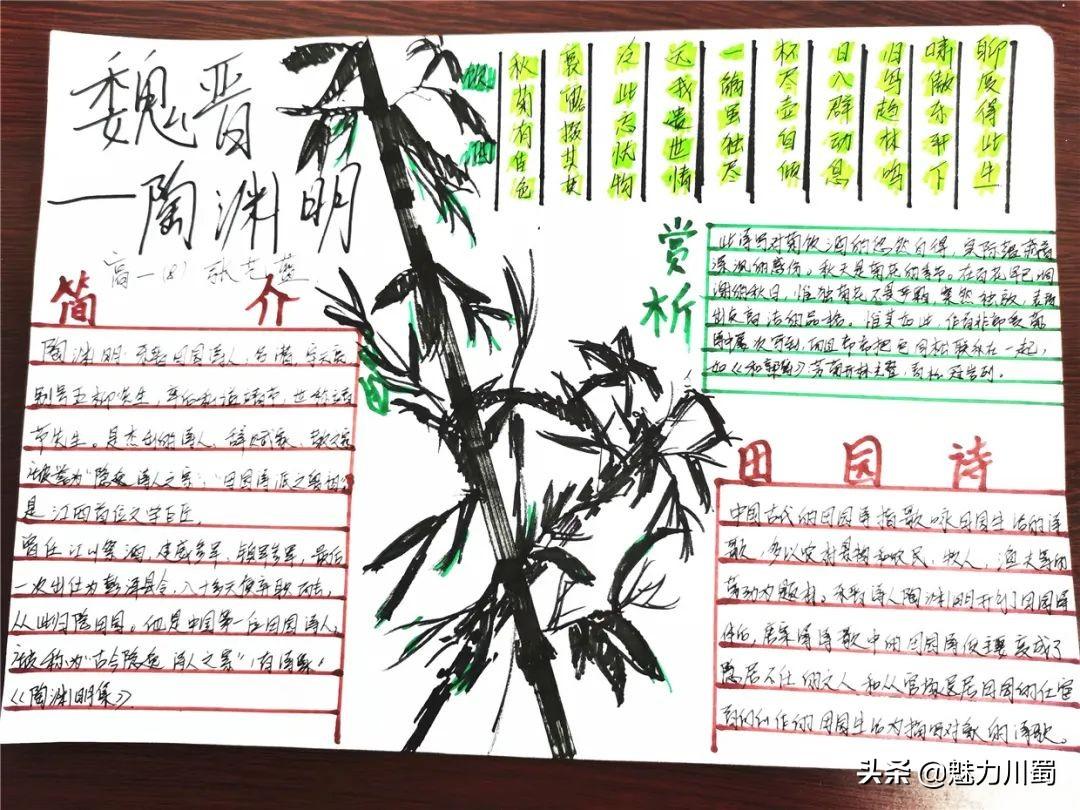 魏晋
—陶渊明
高一(8)
简介
陶渊明：东晋田园诗人，名潜，字元亮
别号五柳先生，卒后私谥靖节，世称靖
节先生。是杰出的诗人、辞赋家、散文家
被誉为“隐逸诗人之宗”，“田园诗派之鼻祖”
是江西首位文学巨匠
曾任江州祭酒，建威参军，镇军参军，最后
一次出仕为彭泽县令，八十多天便弃职而去，
从此归隐田园。他是中国第一位田园诗人，
被称为“古今隐逸诗人之宗”有诗集
《陶渊明集》
饮酒
秋菊有佳色
裛露掇其英
泛此忘忧物
远我遗世情
一觞虽独尽
杯尽壶自倾
日入群动息
归鸟趋林鸣
啸傲东轩下
聊复得此生
赏析
此诗写对菊饮酒的悠然自得，实际蕴藏着
深沉的感伤。秋天是菊花的季节。在百花早已凋
谢的秋日，惟独菊花不畏严霜，粲然独放，表现
出坚贞高洁的品格。惟其如此，作者
而且常常把它同松联系在一起，
如《和郭主簿》芳菊开林耀，青松冠岩列.
田园诗
中国古代的田园诗指歌咏田园生活的诗
歌，多以农村景物和农民、牧人、渔夫等的
劳动为题材。东晋诗人陶渊明开创了田园诗
体后，唐宋等诗歌中的田园诗便主要变成了
隐居不仕的文人和从官场退居田园的仕宦
者们所作的田园生活为描写对象的诗歌。
头条 @魅力川蜀